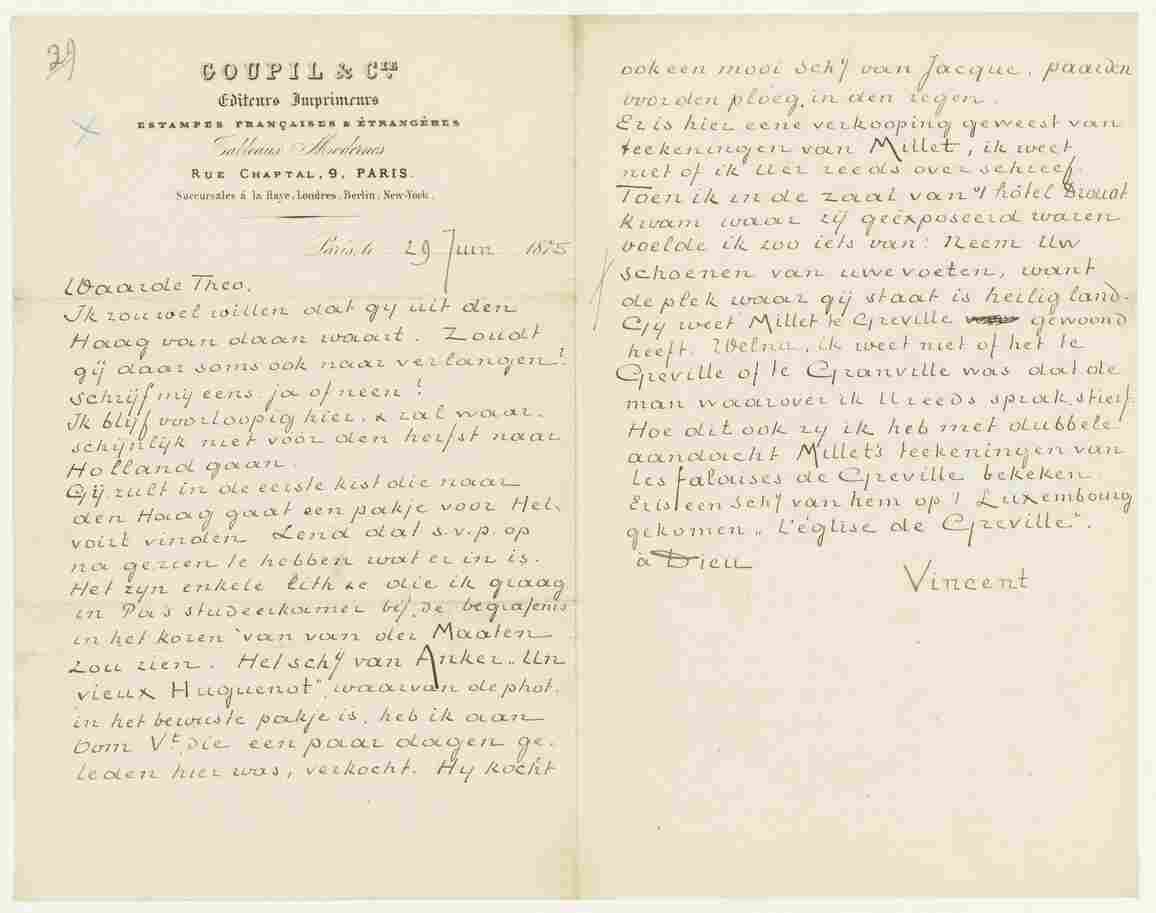 29
GOUPIL & CIE
Editeurs Imprimeurs
ESTAMPES FRANÇAISES & ÉTRANGÈRES
Tableaux Modernes
RUE CHAPTAL, 9, PARIS.
Succursales à la Haye, Londres, Berlin, New-York.
Paris, le 29 Juin 1875
Waarde Theo,
Ik zou wel willen dat gy uit den
Haag van daan waart. Zoudt
gij daar soms ook naar verlangen?
Schrijf mij eens ja of neen!
Ik blijf voorloopig hier, & zal waar-
schijnlijk niet vóór den herfst naar
Holland gaan.
Gij zult in de eerste kist die naar
den Haag gaat een pakje voor Hel-
voirt vinden Zend dat s.v.p. op
na gezien te hebben wat er in is.
Het zyn enkele lith &c die ik graag
in Pa's studeerkamer bij "de begrafenis
in het koren" van van der Maaten
zou zien. Het schij van Anker "Un
vieux Huguenot", waarvan de phot.
in het bewuste pakje is, heb ik aan
Oom Vt, die een paar dagen ge-
leden hier was, verkocht. Hy kocht
ook een mooi schij van Jacque, paarden
voor den ploeg, in den regen.
Er is hier eene verkooping geweest van
teekeningen van Millet, ik weet
niet of ik U er reeds over schreef.
Toen ik in de zaal van 't hôtel Drouot
kwam waar zij geëxposeerd waren
voelde ik zoo iets van: Neem Uw
schoenen van uwe voeten, want
de plek waar gij staat is heilig land.
Gy weet Millet te Greville gewoond
heeft. Welnu, ik weet niet of het te
Greville of te Granville was dat de
man waarover ik U reeds sprak, stierf.
Hoe dit ook zy ik heb met dubbele
aandacht Millet's teekeningen van
Les falaises de Greville bekeken.
Er is een schij van hem op 't Luxembourg
gekomen "L'église de Greville".
à Dieu
Vincent